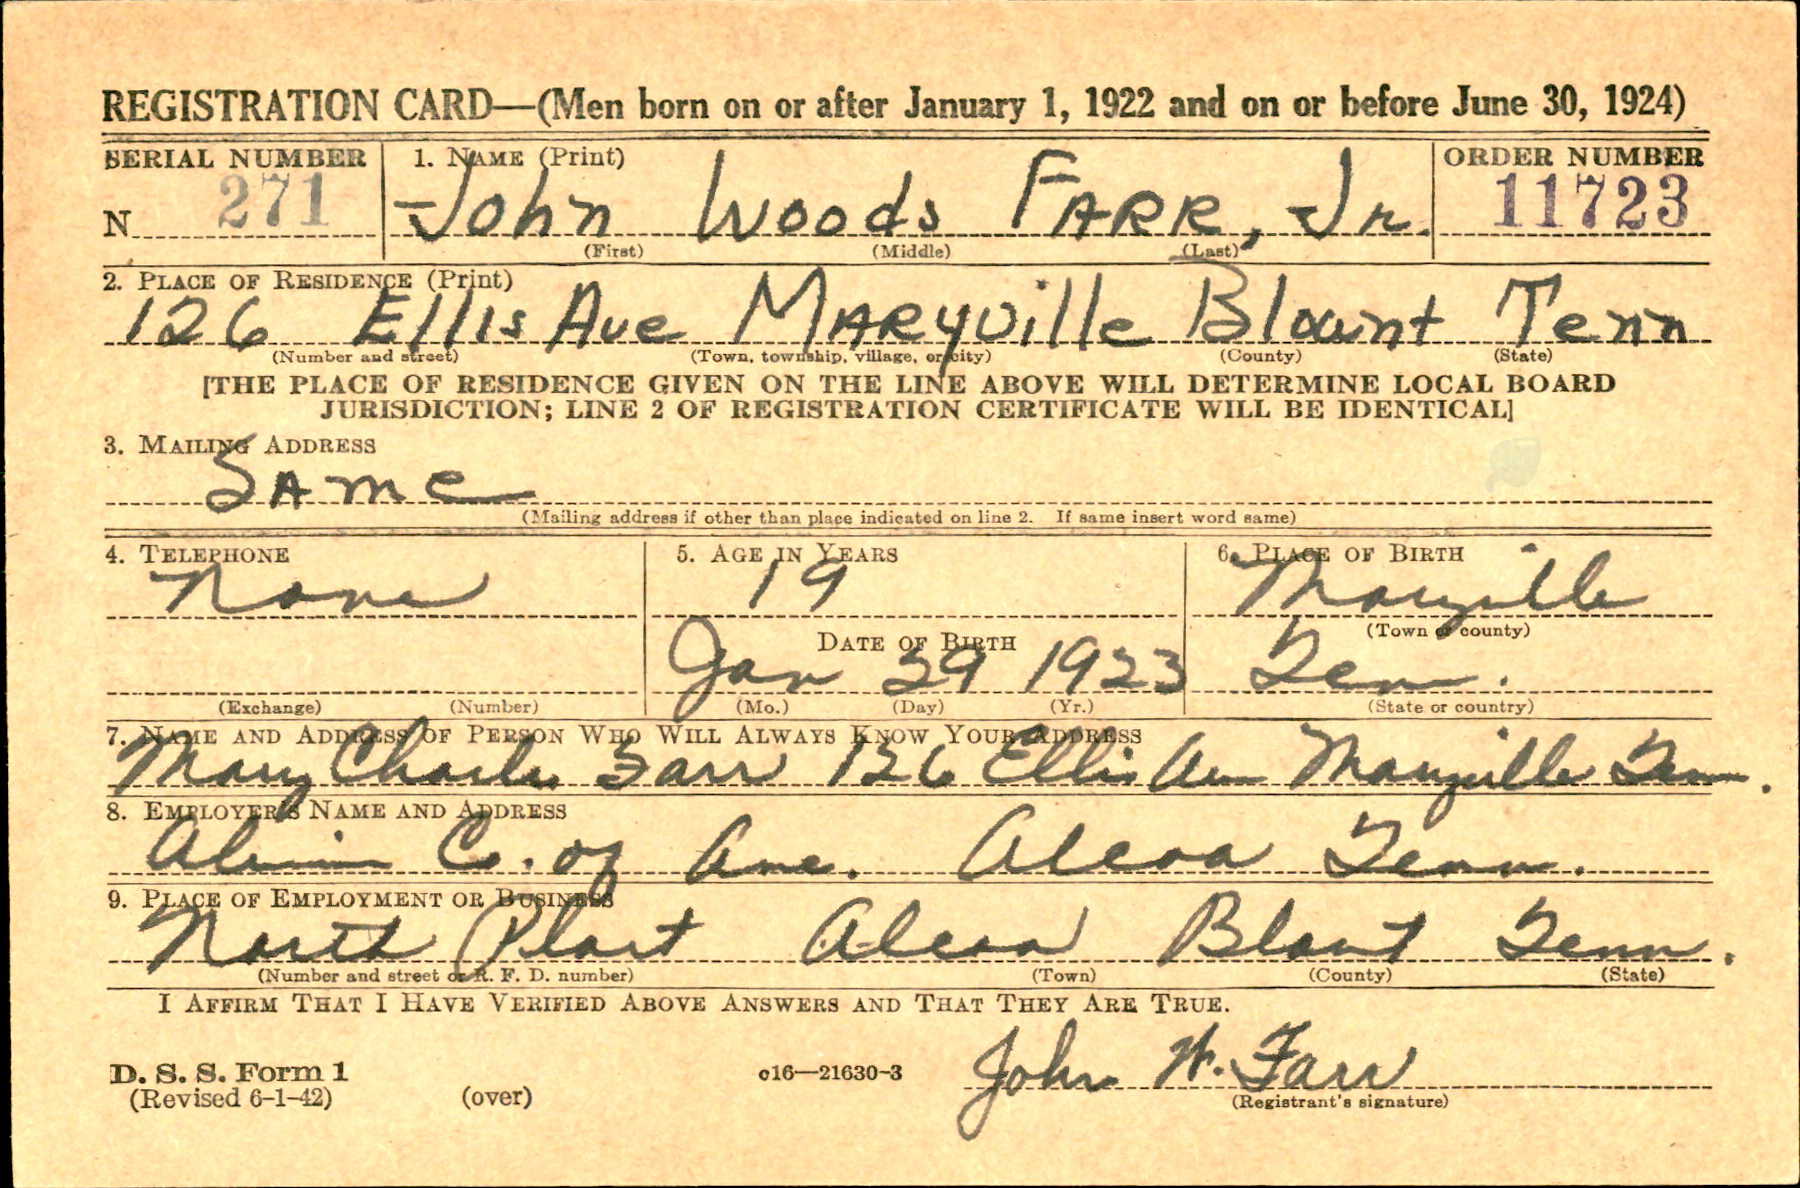 REGISTRATION CARD—(Men born on or after January 1, 1922 and on or before June 30, 1924)
SERIAL NUMBER 1. NAME (Print) ORDER NUMBER
N 271 John Woods FARR, Jr. 11723
(First) (Middle) (Last)
2. PLACE OF RESIDENCE (Print)
126 Ellis Ave MARYville Blount Tenn
(Number and street) (Town, township, village, or city) (County) (State)
[THE PLACE OF RESIDENCE GIVEN ON THE LINE ABOVE WILL DETERMINE LOCAL BOARD
JURISDICTION; LINE 2 OF REGISTRATION CERTIFICATE WILL BE IDENTICAL]
3. MAILING ADDRESS
SAme
(Mailing address if other than place indicated on line 2. If same insert word same)
4. TELEPHONE 5. AGE IN YEARS 6. PLACE OF BIRTH
None 19 Maryville
(Town or county)
DATE OF BIRTH
Jan 29 1923 Tenn.
(Exchange) (Number) (Mo.) (Day) (Yr.) (State or country)
7. NAME AND ADDRESS OF PERSON WHO WILL ALWAYS KNOW YOUR ADDRESS
Mary Charles Farr 126 Ellis Ave Maryville Tenn.
8. EMPLOYER'S NAME AND ADDRESS
Alumin Co. of Ame. Alcoa Tenn.
9. PLACE OF EMPLOYMENT OR BUSINESS
North Plant Alcoa Blount Tenn.
(Number and street or R. F. D. number) (Town) (County) (State)
I AFFIRM THAT I HAVE VERIFIED ABOVE ANSWERS AND THAT THEY ARE TRUE.
D. S. S. Form 1 c16—21630-3 John W. Farr
(Revised 6-1-42) (over) (Registrant's signature)